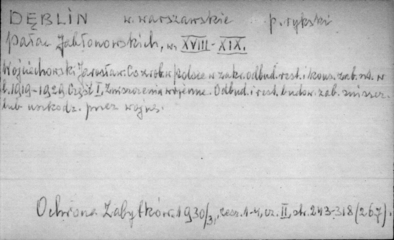 DĘBLIN w. warszawskie p. rykski
pałac Jabłonowskich, w. XVIII-XIX.
Wojciechowski Jarosław: Co zrob. w Polsce w zakr. odbud. rest. i kons. zab. szt. w
l. 1919-1929 Część I, Zniszczenia wojenne. Odbud. i rest. budow. zab. zniszcz.
lub uszkodz. przez wojnę.
Ochrona Zabytków 1930/3, zesz. 1-4, cz. II, str. 243-318 (267).